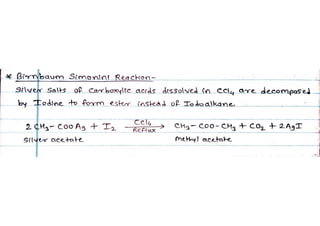 * Birnbaum Simonini Reaction-
Silver Salts of Carboxylic acids dissolved in CCl₄ are decomposed
by Iodine to form ester instead of Iodoalkane.
2 CH₃-COOAg + I₂ CCl₄ → Reflux CH₃-COO-CH₃ + CO₂ + 2AgI
Silver acetate methyl acetate